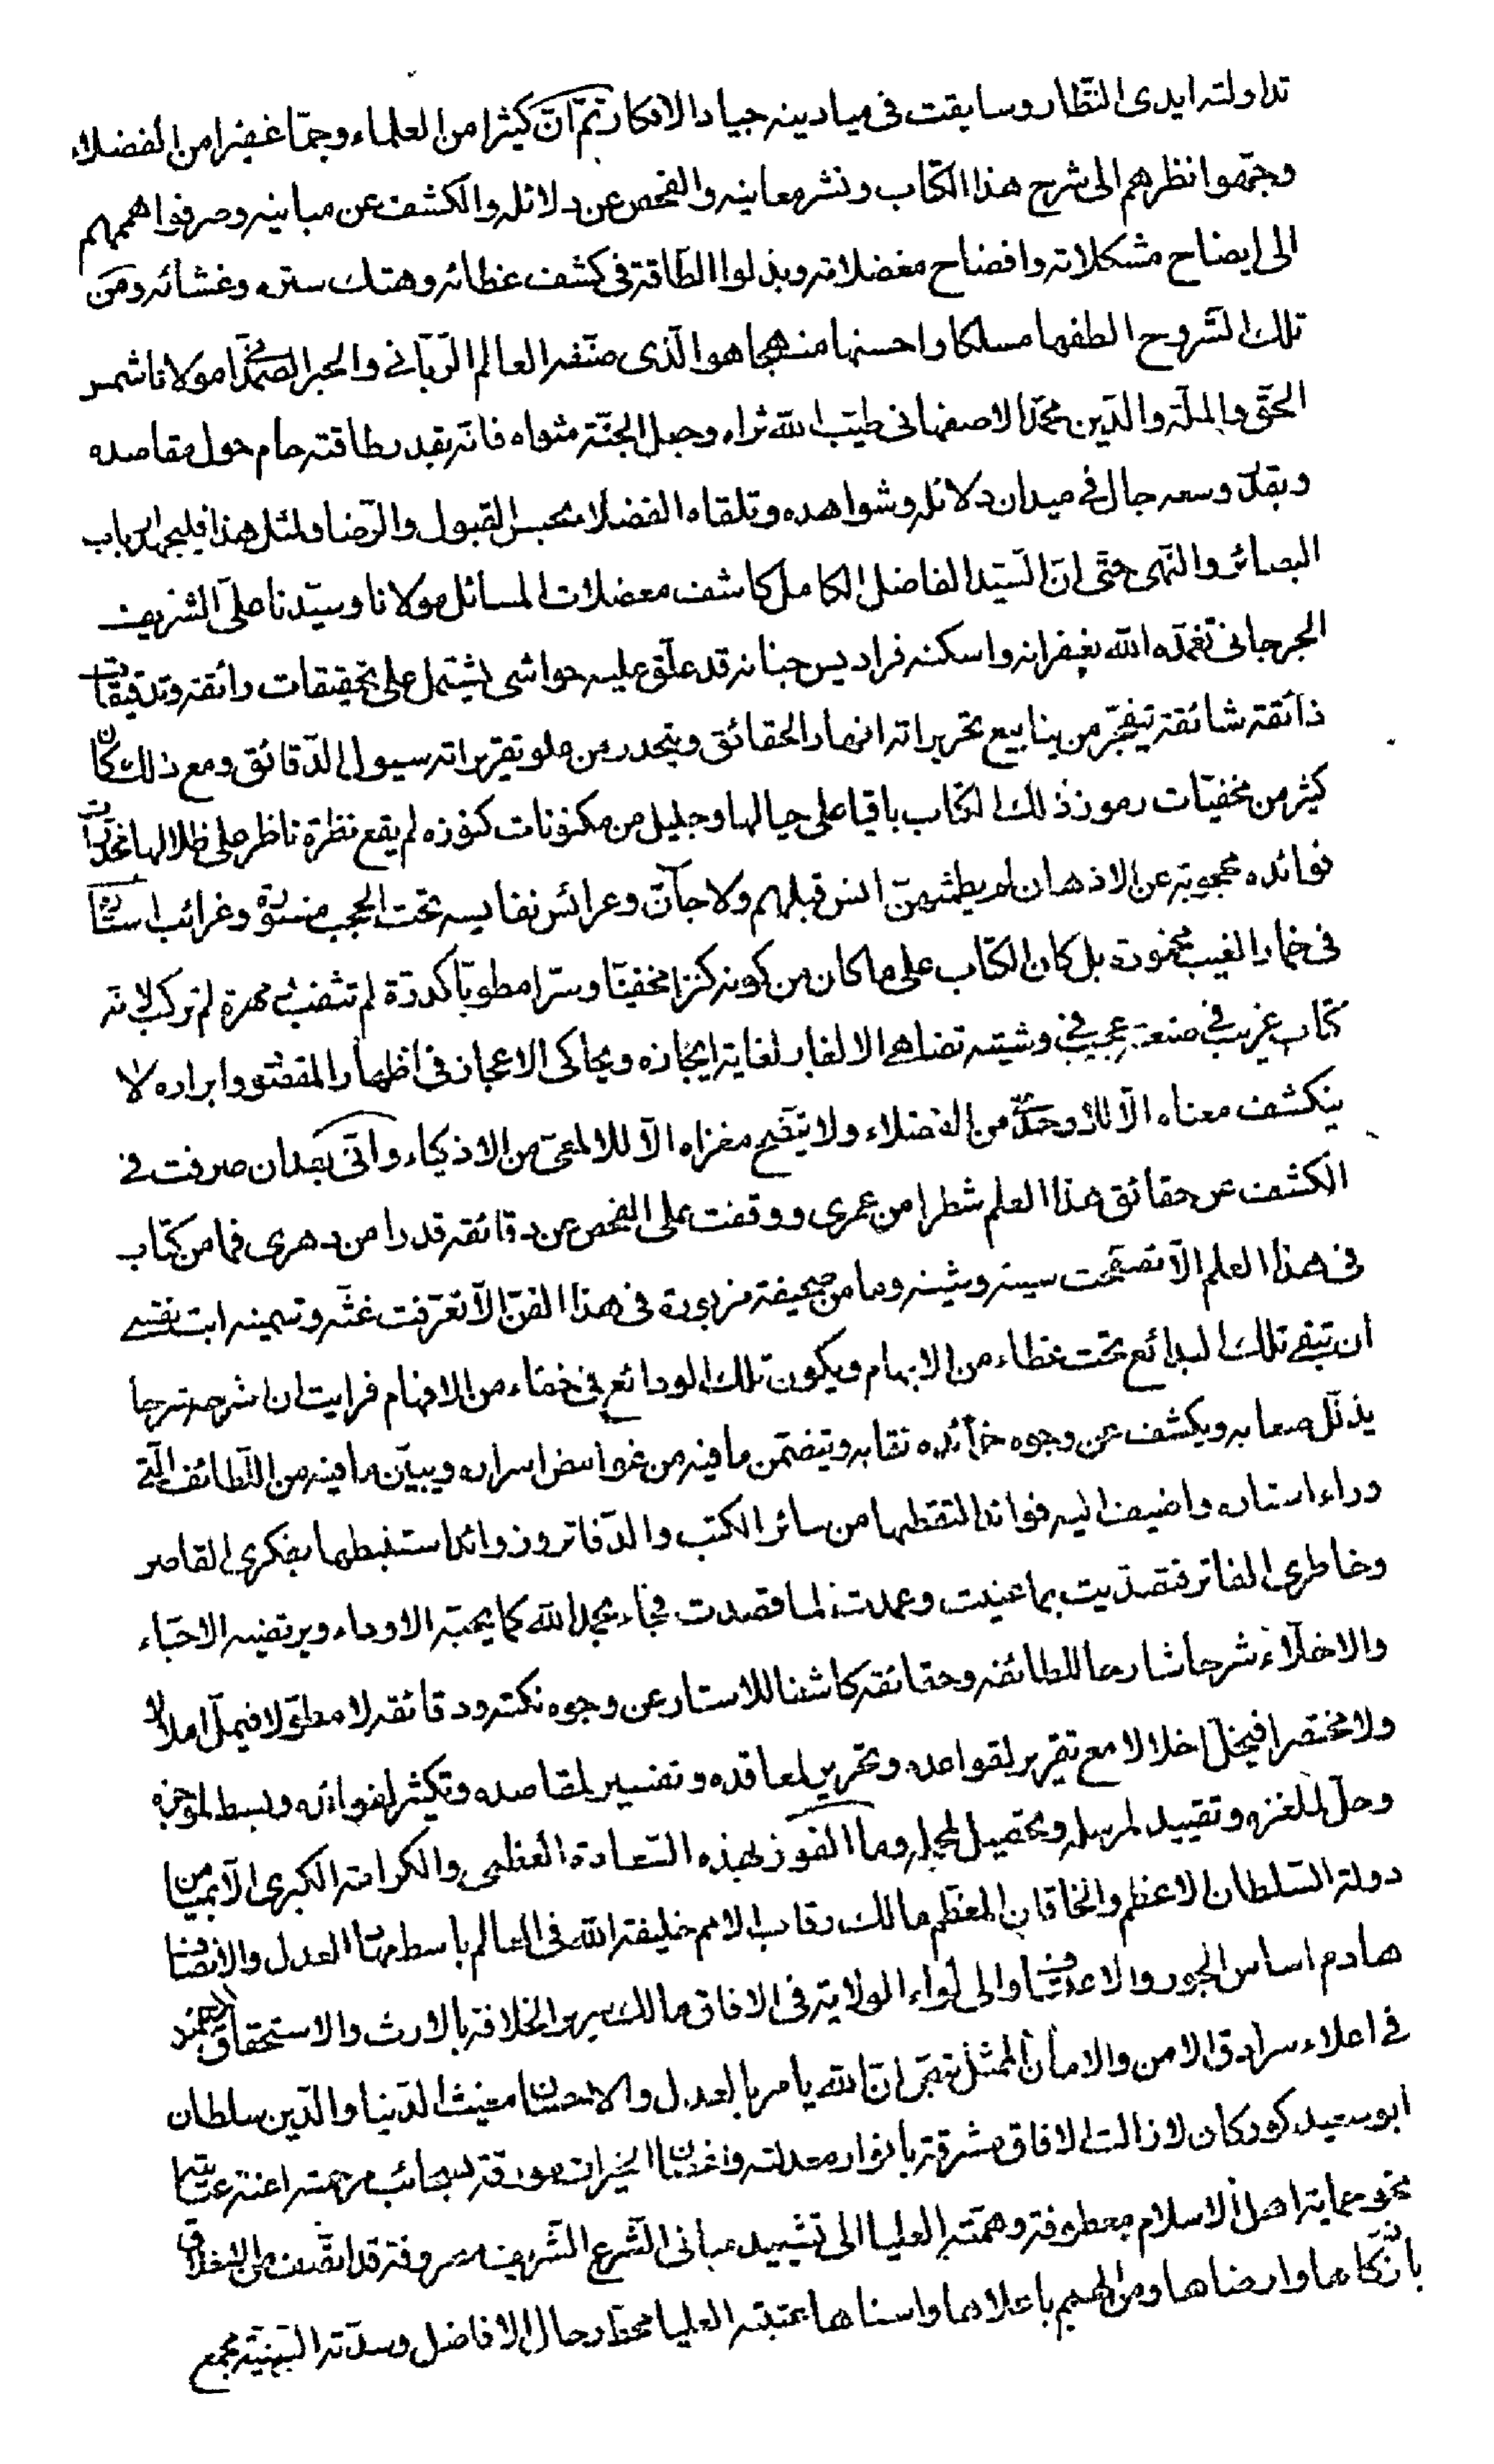 تداولته ايدى النظّار وسابقت فى ميادينه جياد الافكار ثمّ انّ كثيرا من العلماء وجمّا غفيرا من الفضلاء
وجّهوا نظرهم الى شرح هذا الكتاب ونشر معانيه والفحص عن دلائله والكشف عن مبانيه وصرفوا هممهم
الى ايضاح مشكلاته وافضاح معضلاته وبذلوا الطّاقة فى كشف غطائه وهتك ستره وغشائه ومن
تلك الشّروح الطفها مسلكا واحسنها منهجا هو الّذى صنّفه العالم الرّبّانى والحبر الصمدانى مولانا شمس
الحقّ والملّة والدّين محمّد الاصفهانى طيّب الله ثراه وجعل الجنّة مثواه فانّه بقدر طاقته حام حول مقاصده
وبقدر وسعه جال فى ميدان دلائله وشواهده وتلقاه الفضلاء بحسن القبول والرّضا ولمثل هذا فليجهد ارباب
البصائر والنّهى حتّى انّ السّيّد الفاضل الكامل كاشف معضلات المسائل مولانا وسيّدنا على الشريف
الجرجانى تغمّده الله بغفرانه واسكنه فراديس جنانه قد علّق عليه حواشى يشتمل على تحقيقات رائقة وتدقيقات
ذائقة شائقة يتفجّر من ينابيع تحريراته انهار الحقائق ويتحدر من علو تقريراته سيول الدّقائق ومع ذلك كان
كثير من مخفيّات رموز ذلك الكتاب باقيا على حيالها وجليل من مكنونات كنوزه لم يقع نظرة ناظر على ظلالها مخدّرات
فوائده محجوبة عن الاذهان لم يطمثهنّ انس قبلهم ولا جانّ وعرائس نفايسه تحت الحجب مستورة وغرائب استاره
فى خمار الغيب مخمورة بل كان الكتاب على ما كان من كونه كنزا مخفيّا وسرّا مطويّا كدرّة لم تثقب ومهرة لم تركب لانّه
كتاب غريب فى صنعته عجيب فى وشيته تضاهى الالغاز لغاية ايجازه ويحاكى الاعجاز فى اظهار المقصود وابراده لا
ينكشف معناه الّا للاوحدىّ من الفضلاء ولا يتّضح مغزاه الّا للالمعىّ من الاذكياء وانّى بعد ان صرفت فى
الكشف عن حقائق هذا العلم شطرا من عمرى ووقفت على الفحص عن دقائقه قدرا من دهرى فما من كتاب
فى هذا العلم الّا تصفّحت سينه وشينه وما من صحيفة مزبورة فى هذا الفنّ الّا تعرّفت غثّه وسمينه ابت نفسى
ان تبقى تلك البدائع تحت غطاء من الابهام ويكون تلك الودائع فى خفاء من الافهام فرايت ان اشرحه شرحا
يذلّل صعابه ويكشف عن وجوه خرائده نقابه ويتضمّن ما فيه من غوامض اسراره ويبيّن ما فيه من اللّطائف الّتى
وراء استاره واضيف اليه فوائد التقطها من سائر الكتب والدّفاتر وزوائد استنبطها بفكرى القاصر
وخاطرى الفاتر فتصدّيت بما عنيت وعمدت لما قصدت فجاء بحمد الله كما يحبّه الاودّاء ويرتضيه الاحبّاء
والاخلّاء شرحا شارحا للطائفه وحقائقه كاشفا للاستار عن وجوه نكته ودقائقه لا مطوّلا فيملّ املالا
ولا مختصرا فيخلّ اخلالا مع تقرير لقواعده وتحرير لمعاقده وتفسير لمقاصده وتكثير لفوائده وبسط لموجزه
وحلّ لملغزه وتقييد لمرسله وتحصيل لمجمله وما الفوز بهذه السّعادة العظمى والكرامة الكبرى الّا بميامن
دولة السّلطان الاعظم والخاقان المعظّم مالك رقاب الامم خليفة الله فى العالم باسط مهاد العدل والانصاف
هادم اساس الجور والاعتساف والى لواء الولاية فى الافاق مالك سرير الخلافة بالارث والاستحقاق المجتهد
فى اعلاء سرادق الامن والامان الممتثل بنصّ انّ الله يامر بالعدل والاحسان مغيث الدّنيا والدّين سلطان
ابو سعيد كوركان لا زالت الافاق مشرقة بانوار معدلته واغصان الخيرات مورقة بسحائب مرحمته اعنّة عنايته
نحو حماية اهل الاسلام معطوفة وهمّته العليا الى تشييد مبانى الشّرع الشّريف مصروفة قد اتّصف من الاخلاق
بازكاها وارضاها ومن الهمم باعلاها واسناها عتبته العليا محطّ رحال الافاضل وسدّته السّنيّة مجمع